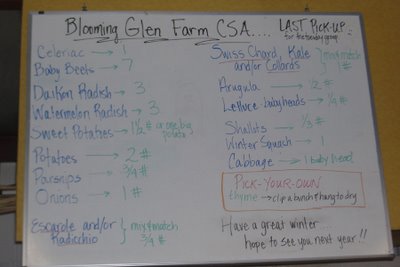 Blooming Glen Farm CSA....
LAST PICK-UP..
for the tuesday group
Celeriac → 1
Baby Beets → 7
Daikon Radish → 3
Watermelon Radish → 3
Sweet Potatoes → 1½ # or one big potato
Potatoes → 2 #
Parsnips → ¾ #
Onions → 1 #
Escarole and/or Radicchio } mix & match ¾ #
Swiss Chard, Kale and/or Collards } mix & match 1 #
Arugula → ½ #
Lettuce babyheads → ¼ #
Shallots → ⅓ #
Winter Squash → 1
Cabbage → 1 baby head
PICK-YOUR-OWN
thyme → clip a bunch & hang to dry
Have a great winter....
hope to see you next year!!